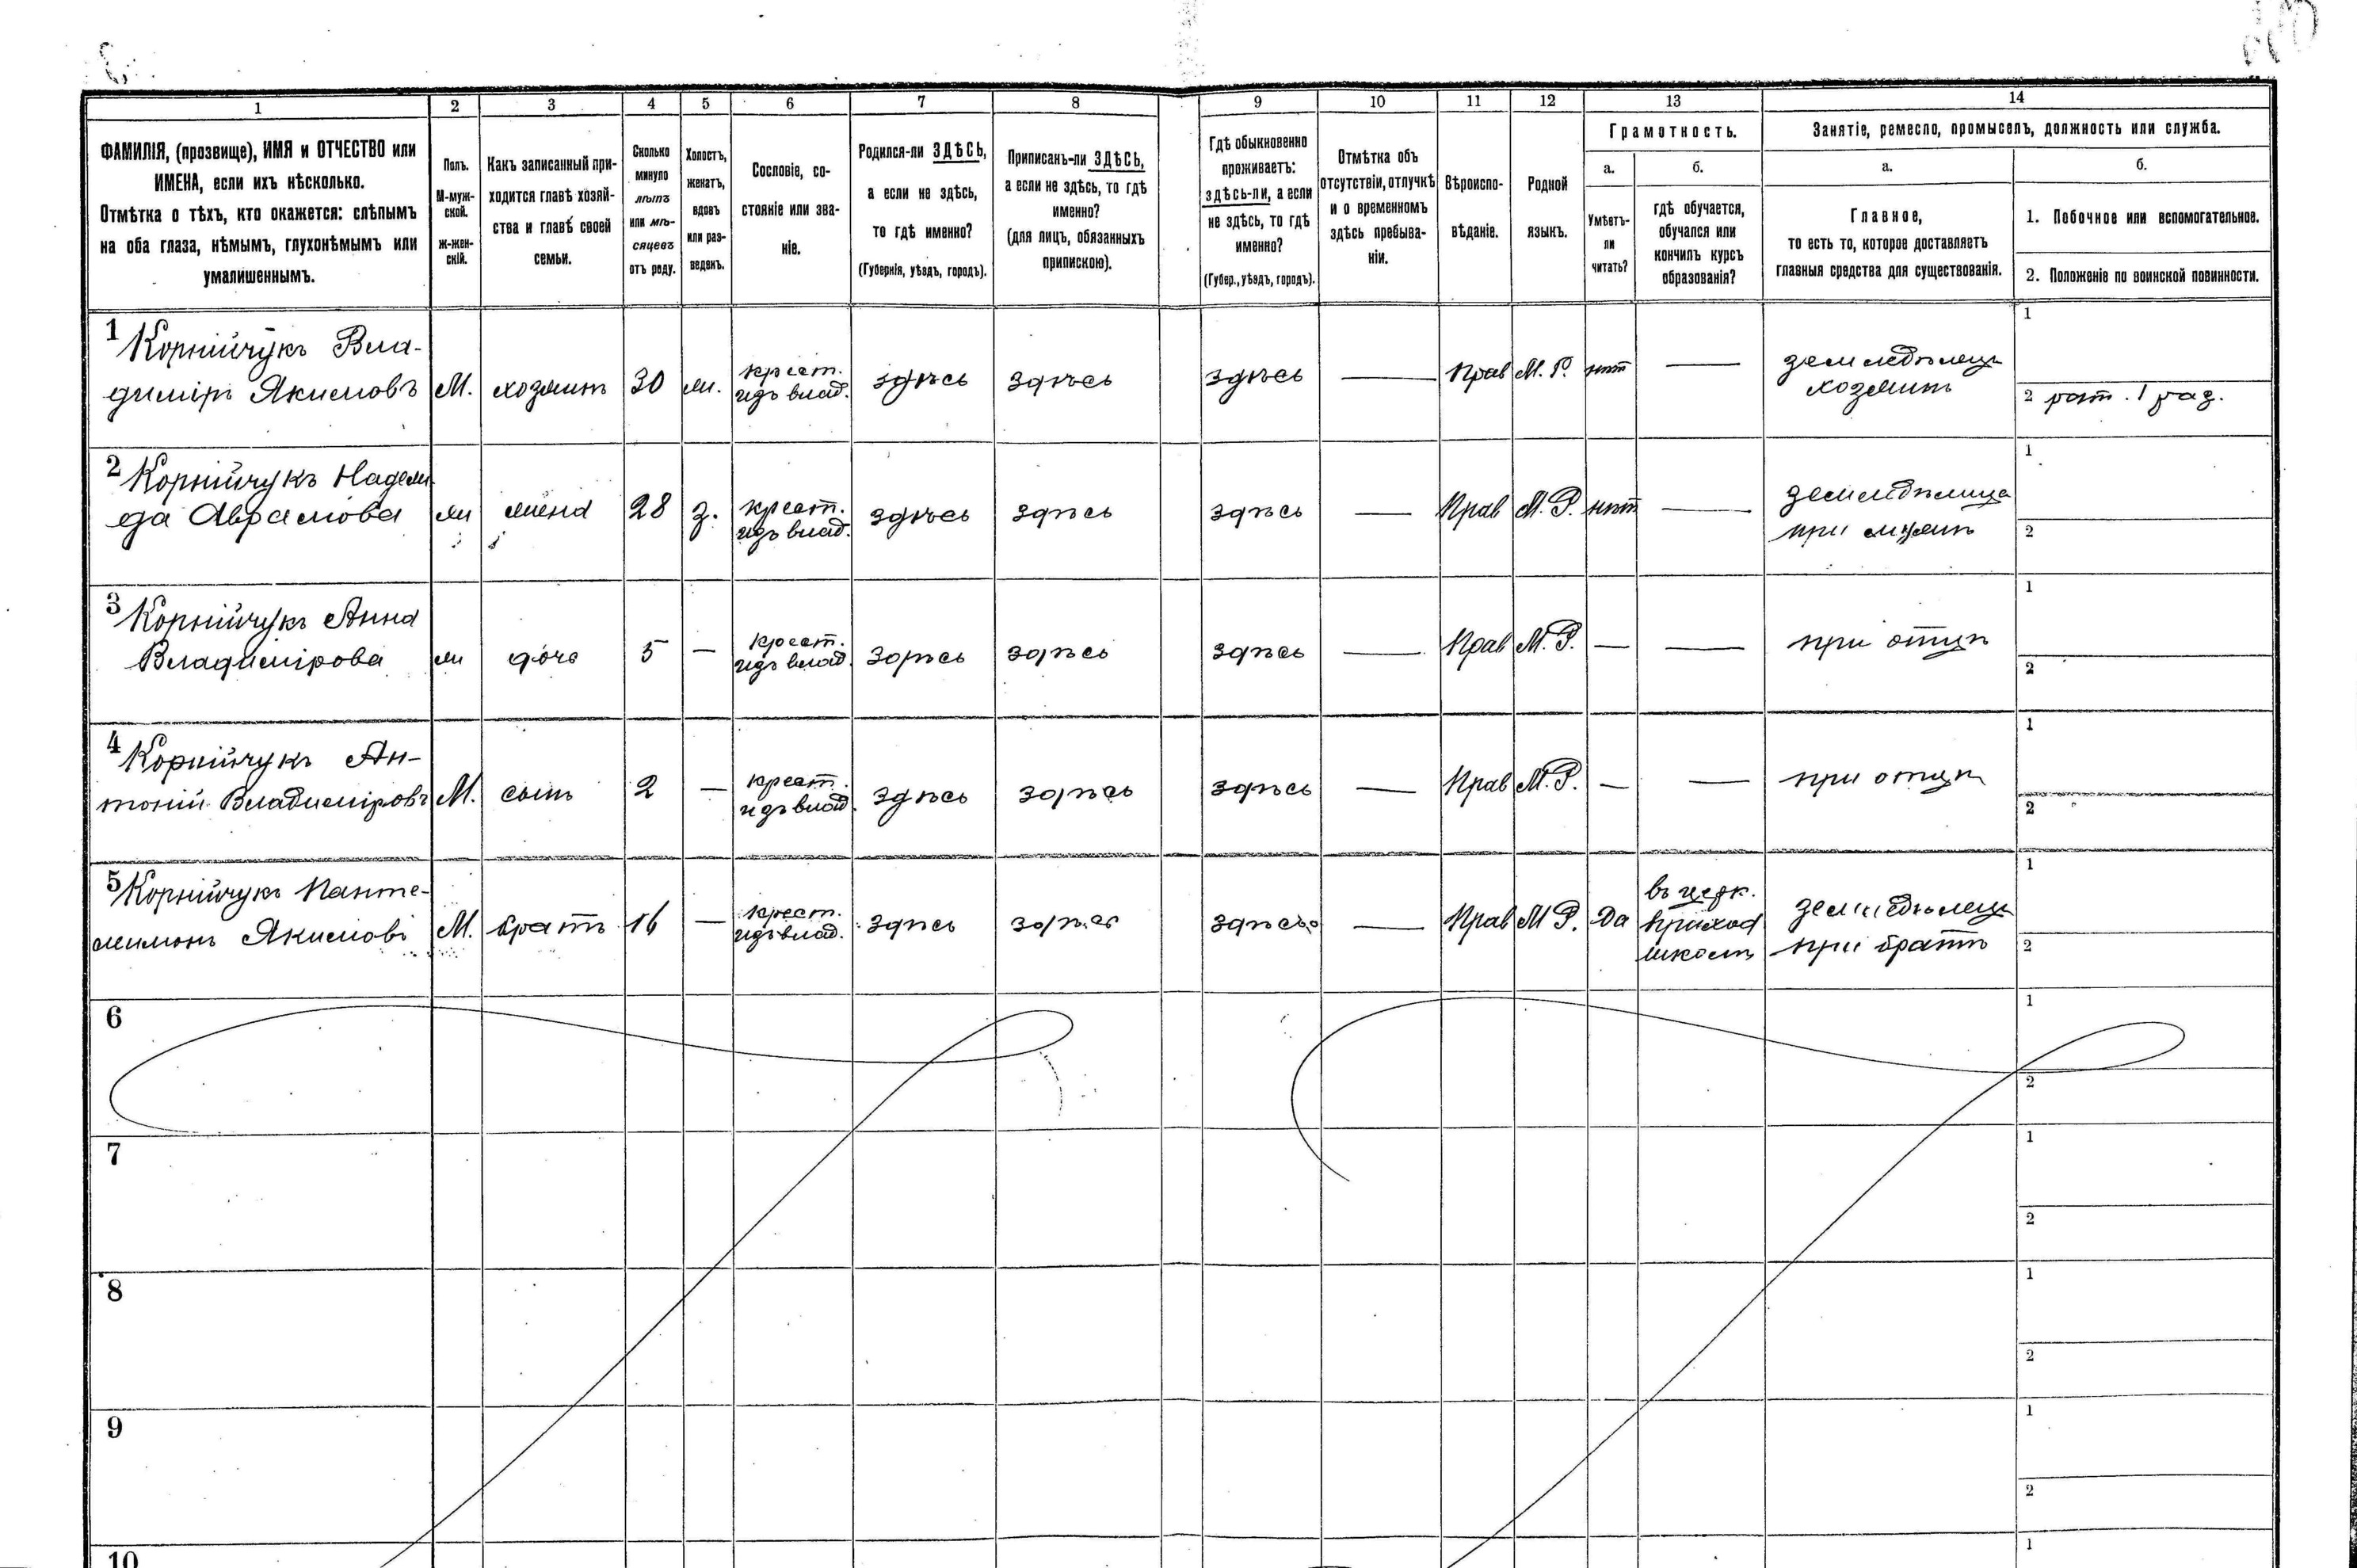 1 2 3 4 5 6 7 8 9 10 11 12 13 14
ФАМИЛІЯ, (прозвище), ИМЯ и ОТЧЕСТВО или
ИМЕНА, если ихъ нѣсколько.
Отмѣтка о тѣхъ, кто окажется: слѣпымъ
на оба глаза, нѣмымъ, глухонѣмымъ или
умалишеннымъ.
Полъ.
М-муж-
ской.
ж-жен-
скій.
Какъ записанный при-
ходится главѣ хозяй-
ства и главѣ своей
семьи.
Сколько
минуло
лѣтъ
или мѣ-
сяцевъ
отъ роду.
Холостъ,
женатъ,
вдовъ
или раз-
веденъ.
Сословіе, со-
стояніе или зва-
ніе.
Родился-ли ЗДѢСЬ,
а если не здѣсь,
то гдѣ именно?
(Губернія, уѣздъ, городъ).
Приписанъ-ли ЗДѢСЬ,
а если не здѣсь, то гдѣ
именно?
(для лицъ, обязанныхъ
припискою).
Гдѣ обыкновенно
проживаетъ:
здѣсь-ли, а если
не здѣсь, то гдѣ
именно?
(Губер., уѣздъ, городъ).
Отмѣтка объ
отсутствіи, отлучкѣ
и о временномъ
здѣсь пребыва-
ніи.
Вѣроиспо-
вѣданіе.
Родной
языкъ.
Грамотность.
а.
Умѣетъ-
ли
читать?
б.
гдѣ обучается,
обучался или
кончилъ курсъ
образованія?
Занятіе, ремесло, промыселъ, должность или служба.
а.
Главное,
то есть то, которое доставляетъ
главныя средства для существованія.
б.
1. Побочное или вспомогательное.
2. Положеніе по воинской повинности.
1 Корнійчукъ Вла-
диміръ Якимовъ
М.
хозяинъ
30
ж.
крест.
изъ влад.
здѣсь
здѣсь
здѣсь
—
Прав
М. Р.
нѣт
—
земледѣлецъ
хозяинъ
1
2 рат. 1 раз.
2 Корнійчукъ Надеж-
да Аврамова
ж
жена
28
з.
крест.
изъ влад.
здѣсь
здѣсь
здѣсь
—
Прав
М. Р.
нѣт
—
земледѣлица
при мужѣ
1
2
3 Корнійчукъ Анна
Владимірова
ж
дочь
5
—
крест.
изъ влад.
здѣсь
здѣсь
здѣсь
—
Прав
М. Р.
—
—
при отцѣ
1
2
4 Корнійчукъ Ан-
тоній Владиміровъ
М.
сынъ
2
—
крест.
изъ влад.
здѣсь
здѣсь
здѣсь
—
Прав
М. Р.
—
—
при отцѣ
1
2
5 Корнійчукъ Панте-
леимонъ Якимовъ
М.
братъ
16
—
крест.
изъ влад.
здѣсь
здѣсь
здѣсь
—
Прав
М Р.
Да
въ церк.
приход
школѣ
земледѣлецъ
при братѣ
1
2
6
1
2
7
1
2
8
1
2
9
1
2
10
1